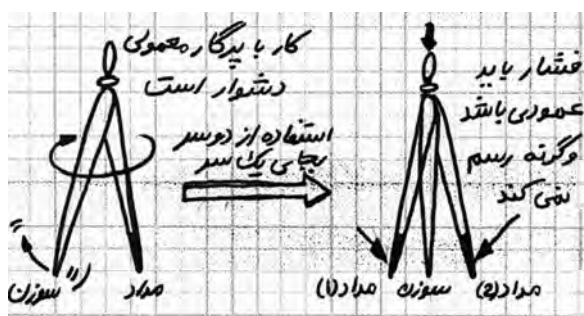 کار با پرگار معمولی
دشوار است
استفاده از دوسر
بجای یک سر
سوزن
مداد
فشار باید
عمودی باشد
وگرنه رسم
نمی کند
مداد (1)
سوزن
مداد (2)